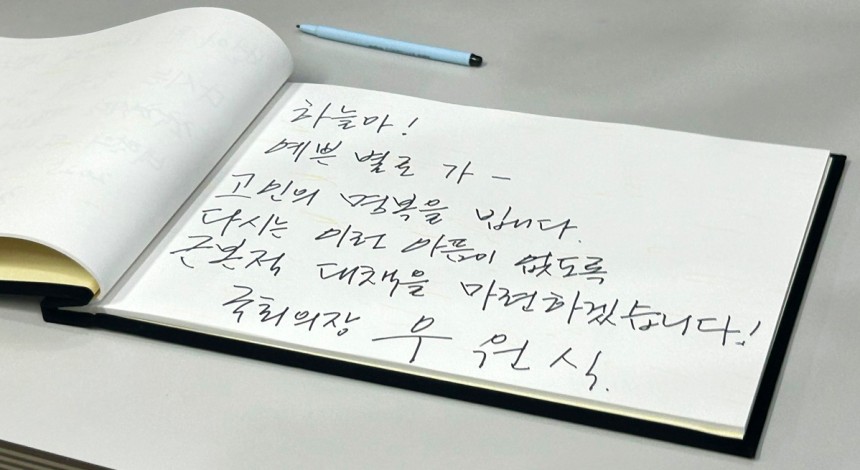 하늘아!
예쁜 별로 가 -
고인의 명복을 빕니다.
다시는 이런 아픔이 없도록
근본적 대책을 마련하겠습니다!
국회의장 우 원 식.